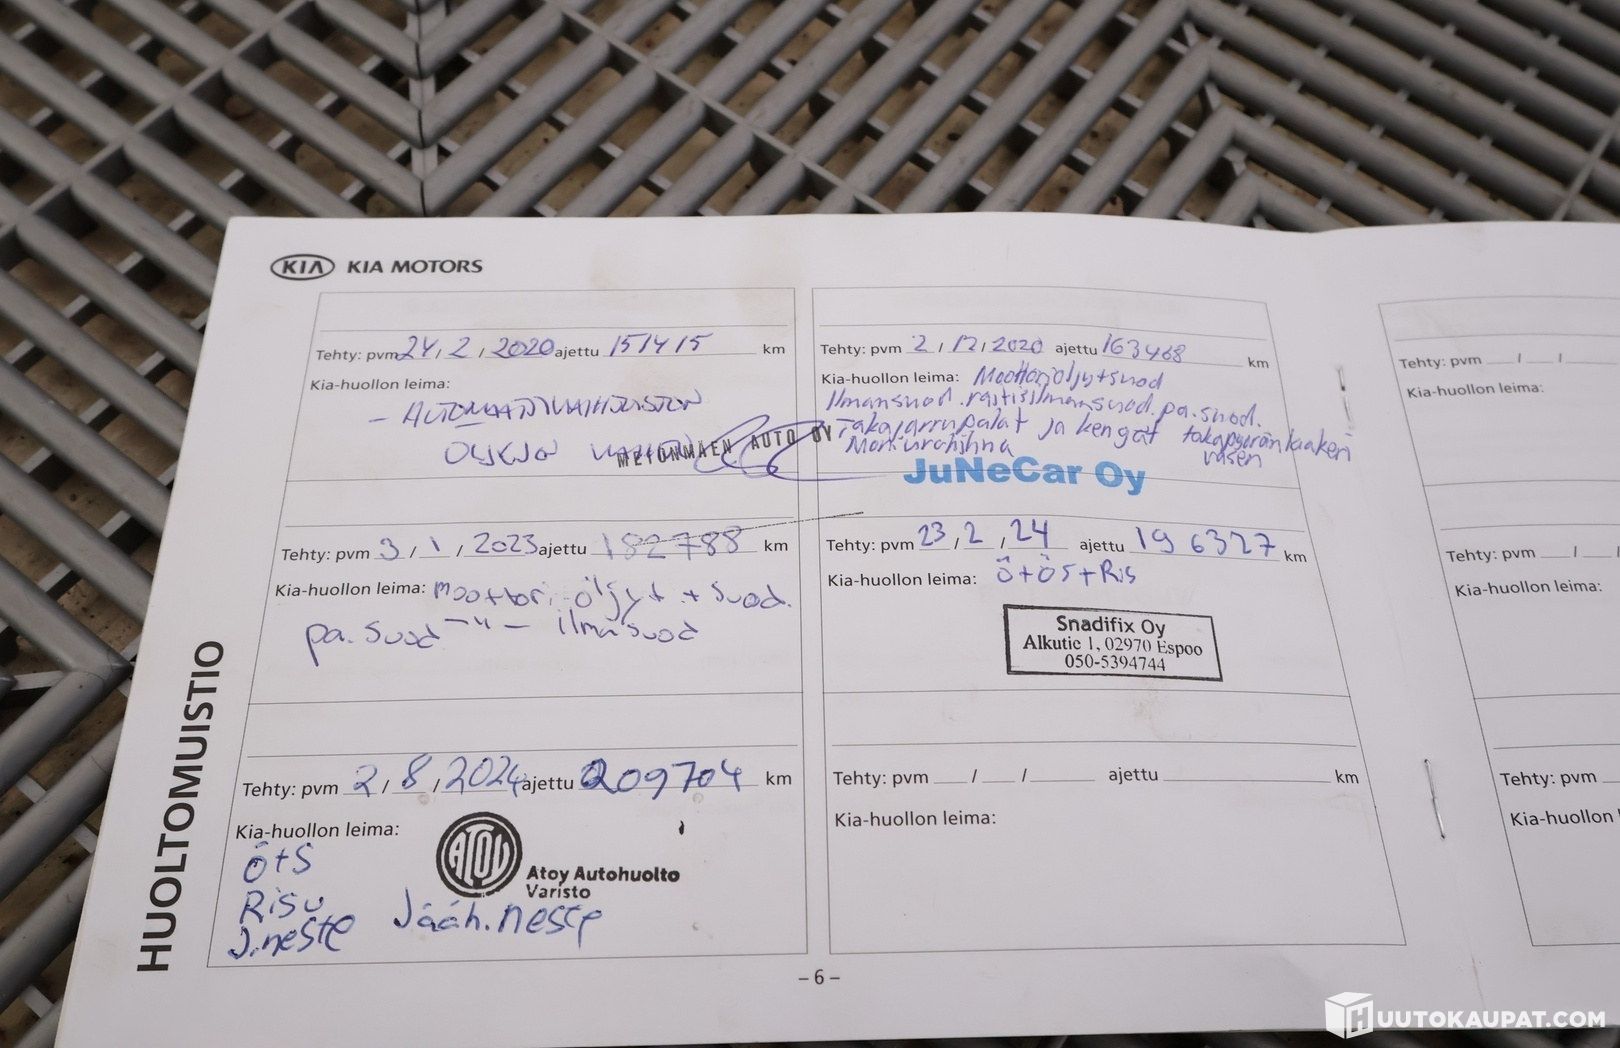 KIA KIA MOTORS
Tehty: pvm 24 / 2 / 2020 ajettu 151415 km
Kia-huollon leima:
- AUTOMAATTIVAIHTEISTON
ÖLJYJEN VAIHTO
METONMÄEN AUTO OY
Tehty: pvm 2 / 12 / 2020 ajettu 163468 km
Kia-huollon leima: Moottoriöljyt+suod
Ilmansuod. raitisilmansuod. pa.suod.
Takajarrupalat ja kengät takapyöränlaakeri
Moniurahihna vasen
JuNeCar Oy
Tehty: pvm 3 / 1 / 2023 ajettu 182788 km
Kia-huollon leima: moottori öljyt + suod.
pa. suod -"- ilmasuod
Tehty: pvm 23 / 2 / 24 ajettu 196327 km
Kia-huollon leima: Ö+ÖS+Ris
Snadifix Oy
Alkutie 1, 02970 Espoo
050-5394744
Tehty: pvm 2 / 8 / 2024 ajettu 209704 km
Kia-huollon leima:
Ö+S
Risu
J.neste Jääh.neste
ATOY
Atoy Autohuolto
Varisto
Tehty: pvm __ / __ / ____ ajettu ________ km
Kia-huollon leima:
Tehty: pvm __ / __ /
Kia-huollon leima:
Tehty: pvm __ / __ /
Kia-huollon leima:
Tehty: pvm
Kia-huollon
HUOLTOMUISTIO
– 6 –
HUUTOKAUPAT.COM